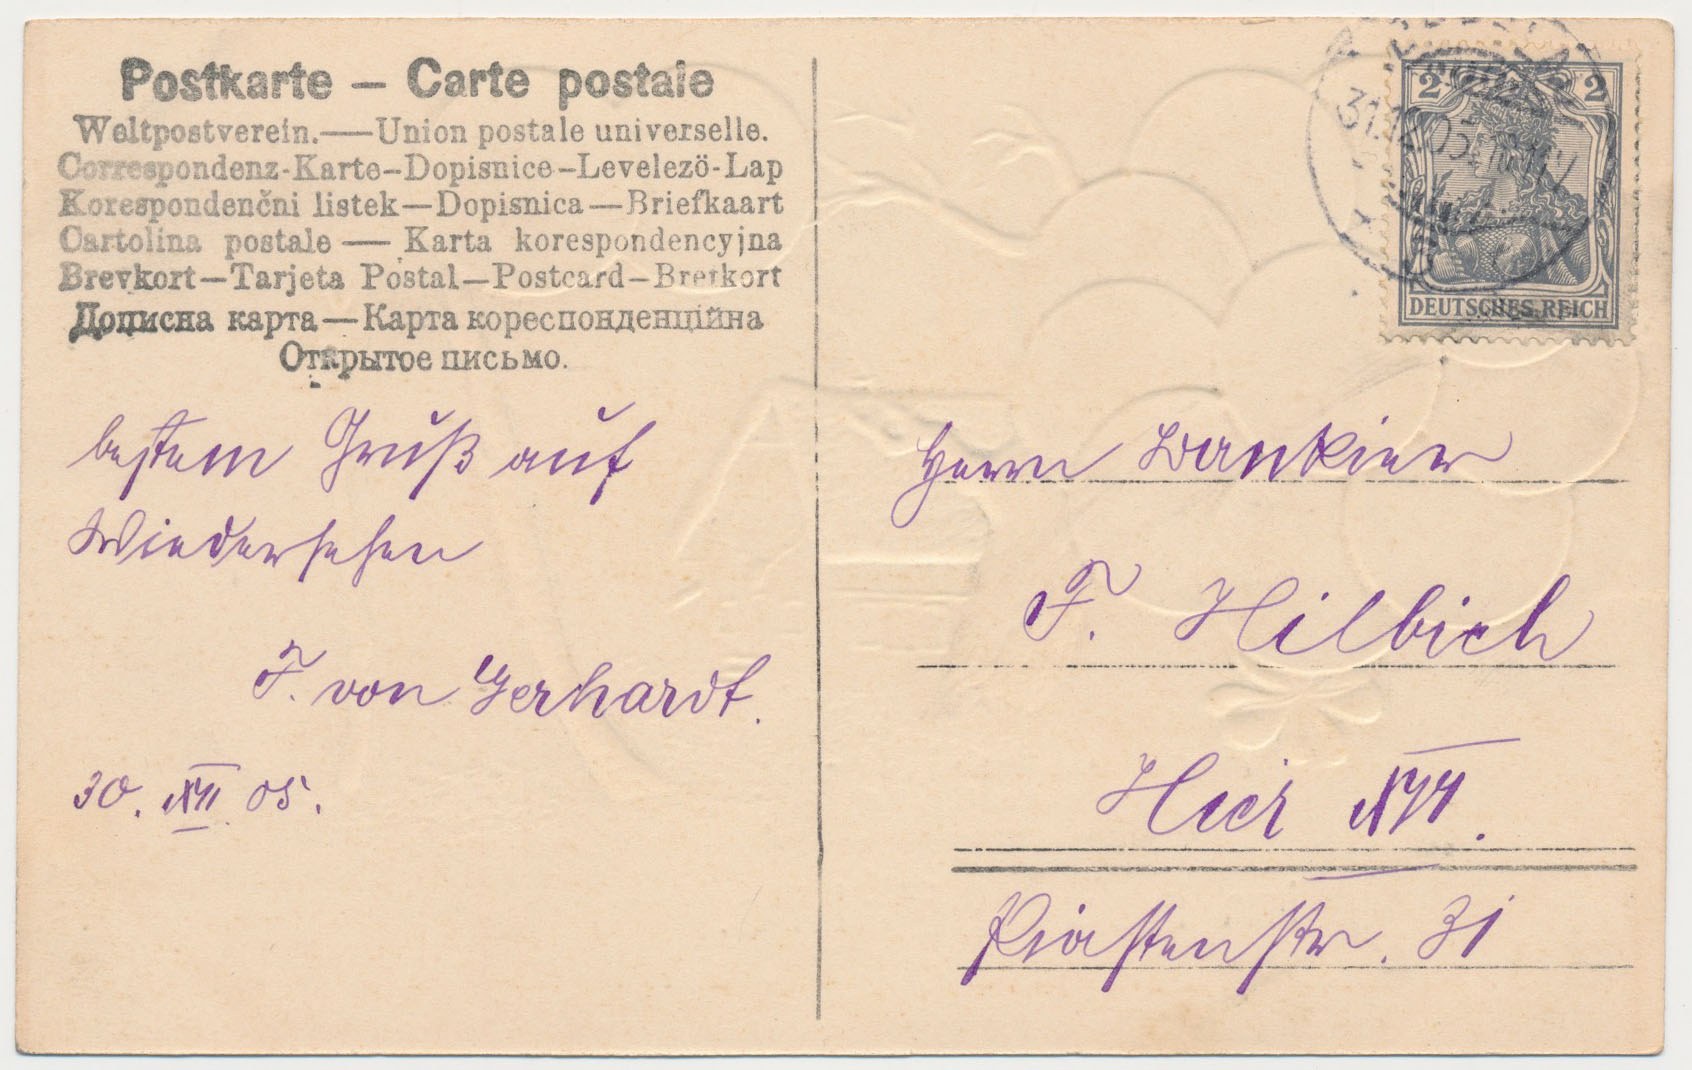 Postkarte – Carte postale
Weltpostverein.—Union postale universelle.
Correspondenz-Karte–Dopisnice–Levelező-Lap
Korespondenčni listek—Dopisnica—Briefkaart
Cartolina postale — Karta korespondencyjna
Brevkort—Tarjeta Postal—Postcard—Brefkort
Дописна карта—Карта кореспонденційна
Открытое письмо.
bestem Gruß auf
Wiedersehen
F. von Gerhardt.
30. XII. 05.
2 2
31.12.05
DEUTSCHES REICH
Herrn Bankier
F. Hilbich
Hier
Piastenstr. 31